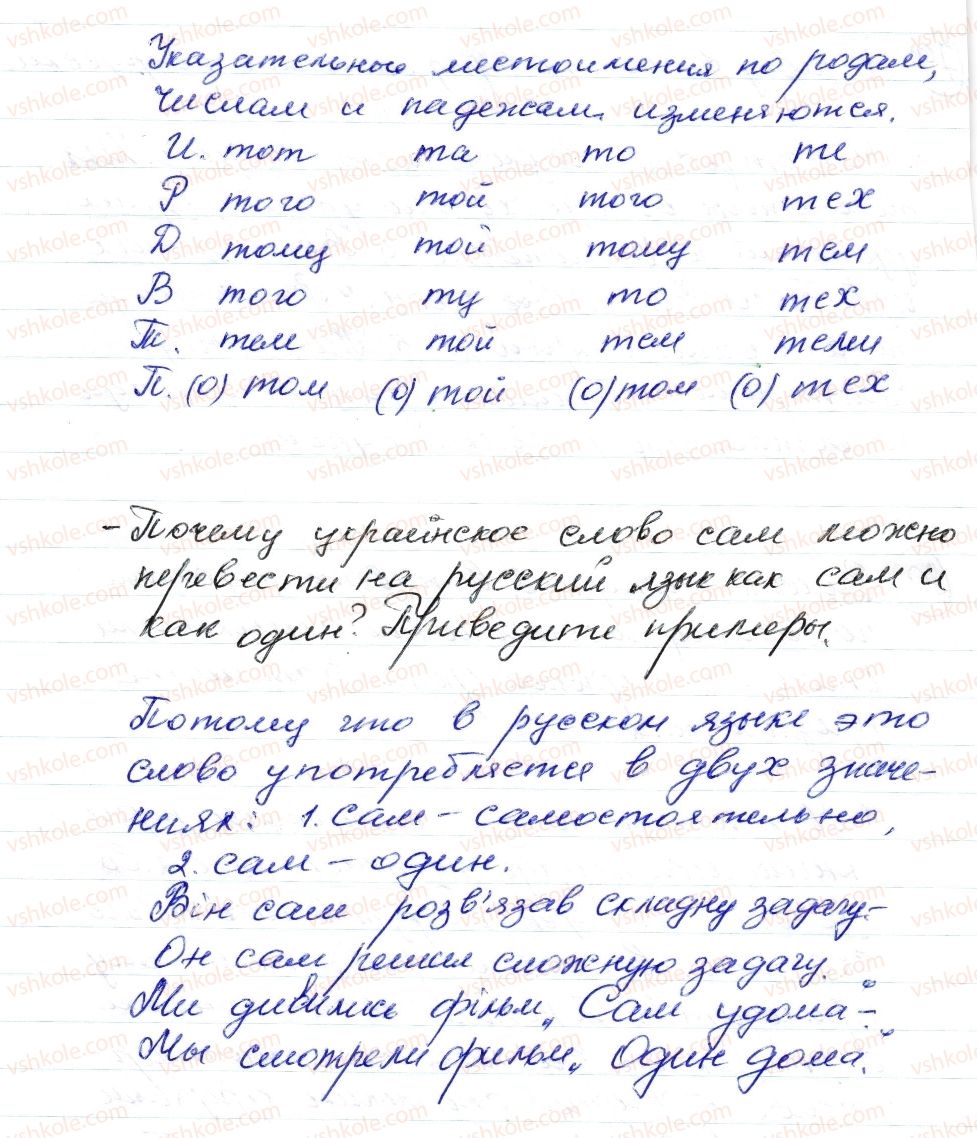 Указательные местоимения по родам,
числам и падежам изменяются.
И. тот та то те
Р того той того тех
Д тому той тому тем
В того ту то тех
Т. тем той тем теми
П. (о) том (о) той (о) том (о) тех
- Почему украинское слово сам можно
перевести на русский язык как сам и
как один? Приведите примеры.
Потому что в русском языке это
слово употребляется в двух значе-
ниях: 1. сам – самостоятельно,
2. сам – один.
Він сам розв'язав складну задачу. –
Он сам решил сложную задачу.
Ми дивились фільм „Сам удома" –
Мы смотрели фильм „Один дома".